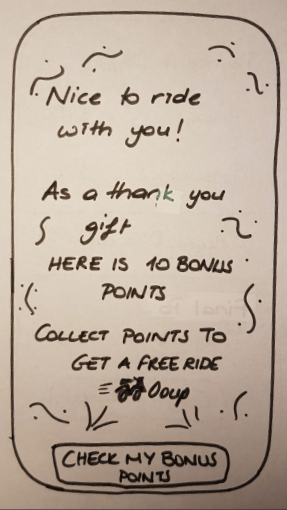 Nice to ride
with you!
As a thank you
gift
HERE IS 10 BONUS
POINTS
COLLECT POINTS TO
GET A FREE RIDE
CHECK MY BONUS
POINTS